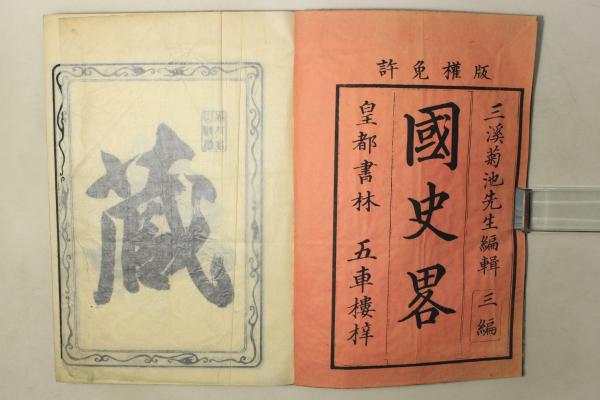 版權免許
三溪菊池先生編輯 三編
國史畧
皇都書林 五車樓梓
藏